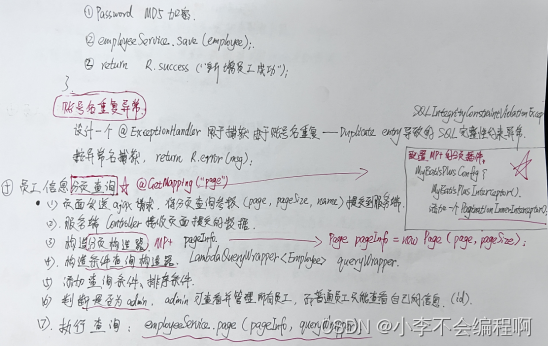 ① Password MD5 加密.
② employeeService.save (employee);
③ return R.success ("新增员工成功");
}
账号名重复异常.
SQLIntegrityConstraintViolationExcep
设计一个 @ExceptionHandler 用于捕获由于账号名重复——Duplicate entry导致的SQL完整性约束异常.
return R.error(msg).
配置MP的分页插件.
MyBatisPlusConfig {
MyBatisPlusInterceptor().
添加一个PaginationInnerInterceptor().
员工信息分页查询 ☆ @GetMapping ("page")
(1) 页面发送ajax请求, 将分页查询参数 (page, pageSize, name) 提交到服务端.
(2) 服务端Controller接收页面提交的数据.
(3) 构造分页构造器 MP+ pageInfo. → Page pageInfo = new Page (page, pageSize);
(4) 构造条件查询构造器. LambdaQueryWrapper <Employee> queryWrapper.
(5) 添加查询条件, 排序条件.
(6) 判断是否为admin, admin可查看并管理所有员工, 而普通员工只能查看自己的信息. (id).
(7) 执行查询: employeeService.page (pageInfo, queryWrapper)
CSDN @小李不会编程啊